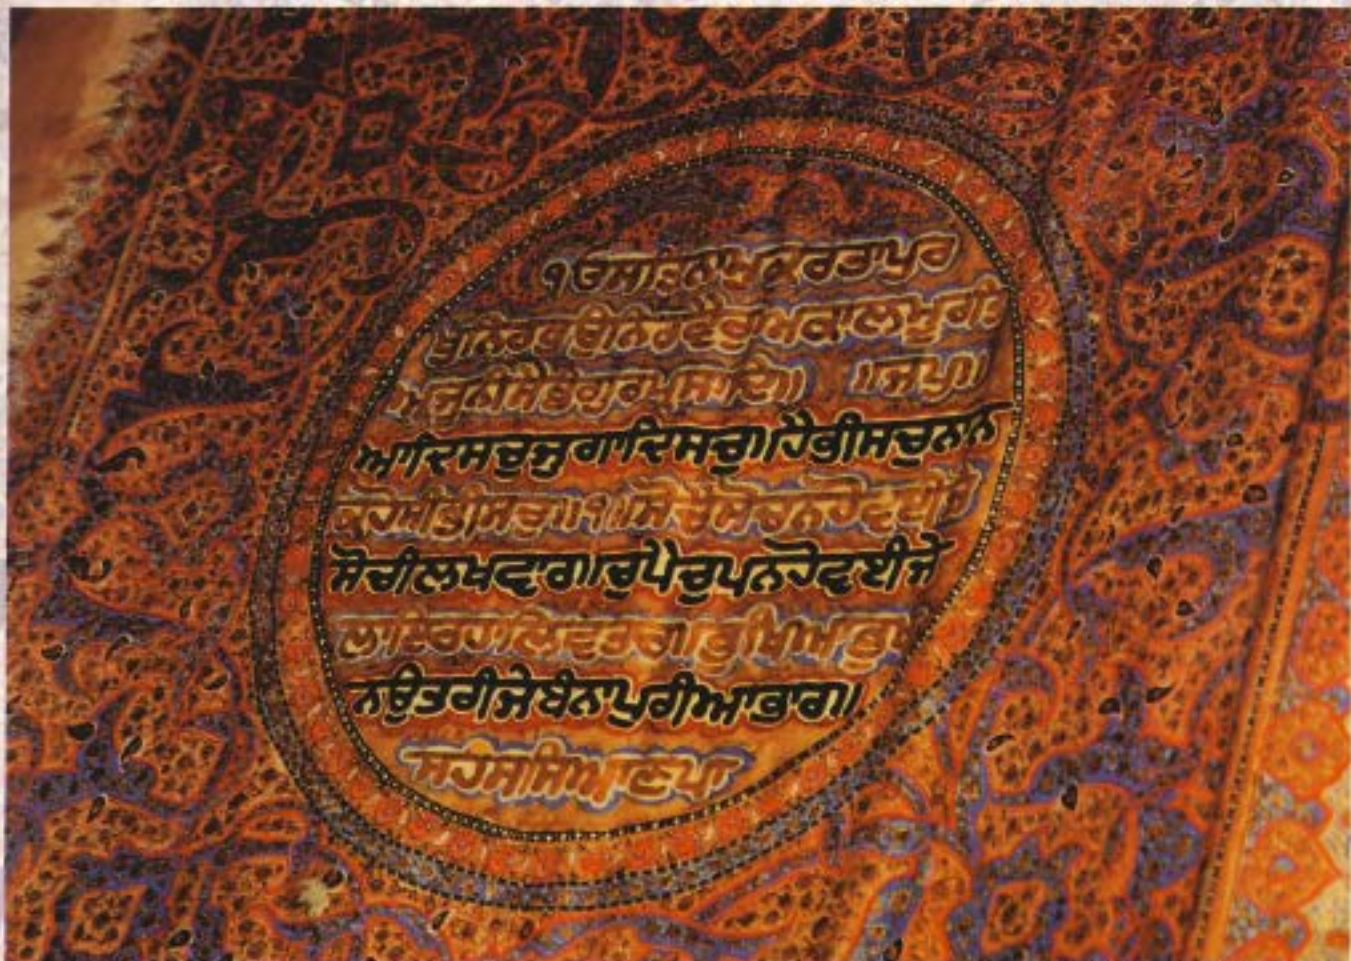 ੧ਓਸਤਿਨਾਮੁਕਰਤਾਪੁਰ
ਖੁਨਿਰਭਉਨਿਰਵੈਰੁਅਕਾਲਮੂਰਤਿ
ਅਜੂਨੀਸੈਭੰਗੁਰਪ੍ਰਸਾਦਿ॥ ॥ਜਪੁ॥
ਆਦਿਸਚੁਜੁਗਾਦਿਸਚੁ॥ਹੈਭੀਸਚੁਨਾਨ
ਕਹੋਸੀਭੀਸਚੁ॥੧॥ਸੋਚੈਸੋਚਨਹੋਵਈਜੇ
ਸੋਚੀਲਖਵਾਰ॥ਚੁਪੈਚੁਪਨਹੋਵਈਜੇ
ਲਾਇਰਹਾਲਿਵਤਾਰ॥ਭੁਖਿਆਭੁਖ
ਨਉਤਰੀਜੇਬੰਨਾਪੁਰੀਆਭਾਰ॥
ਸਹੰਸਸਿਆਣਪਾ